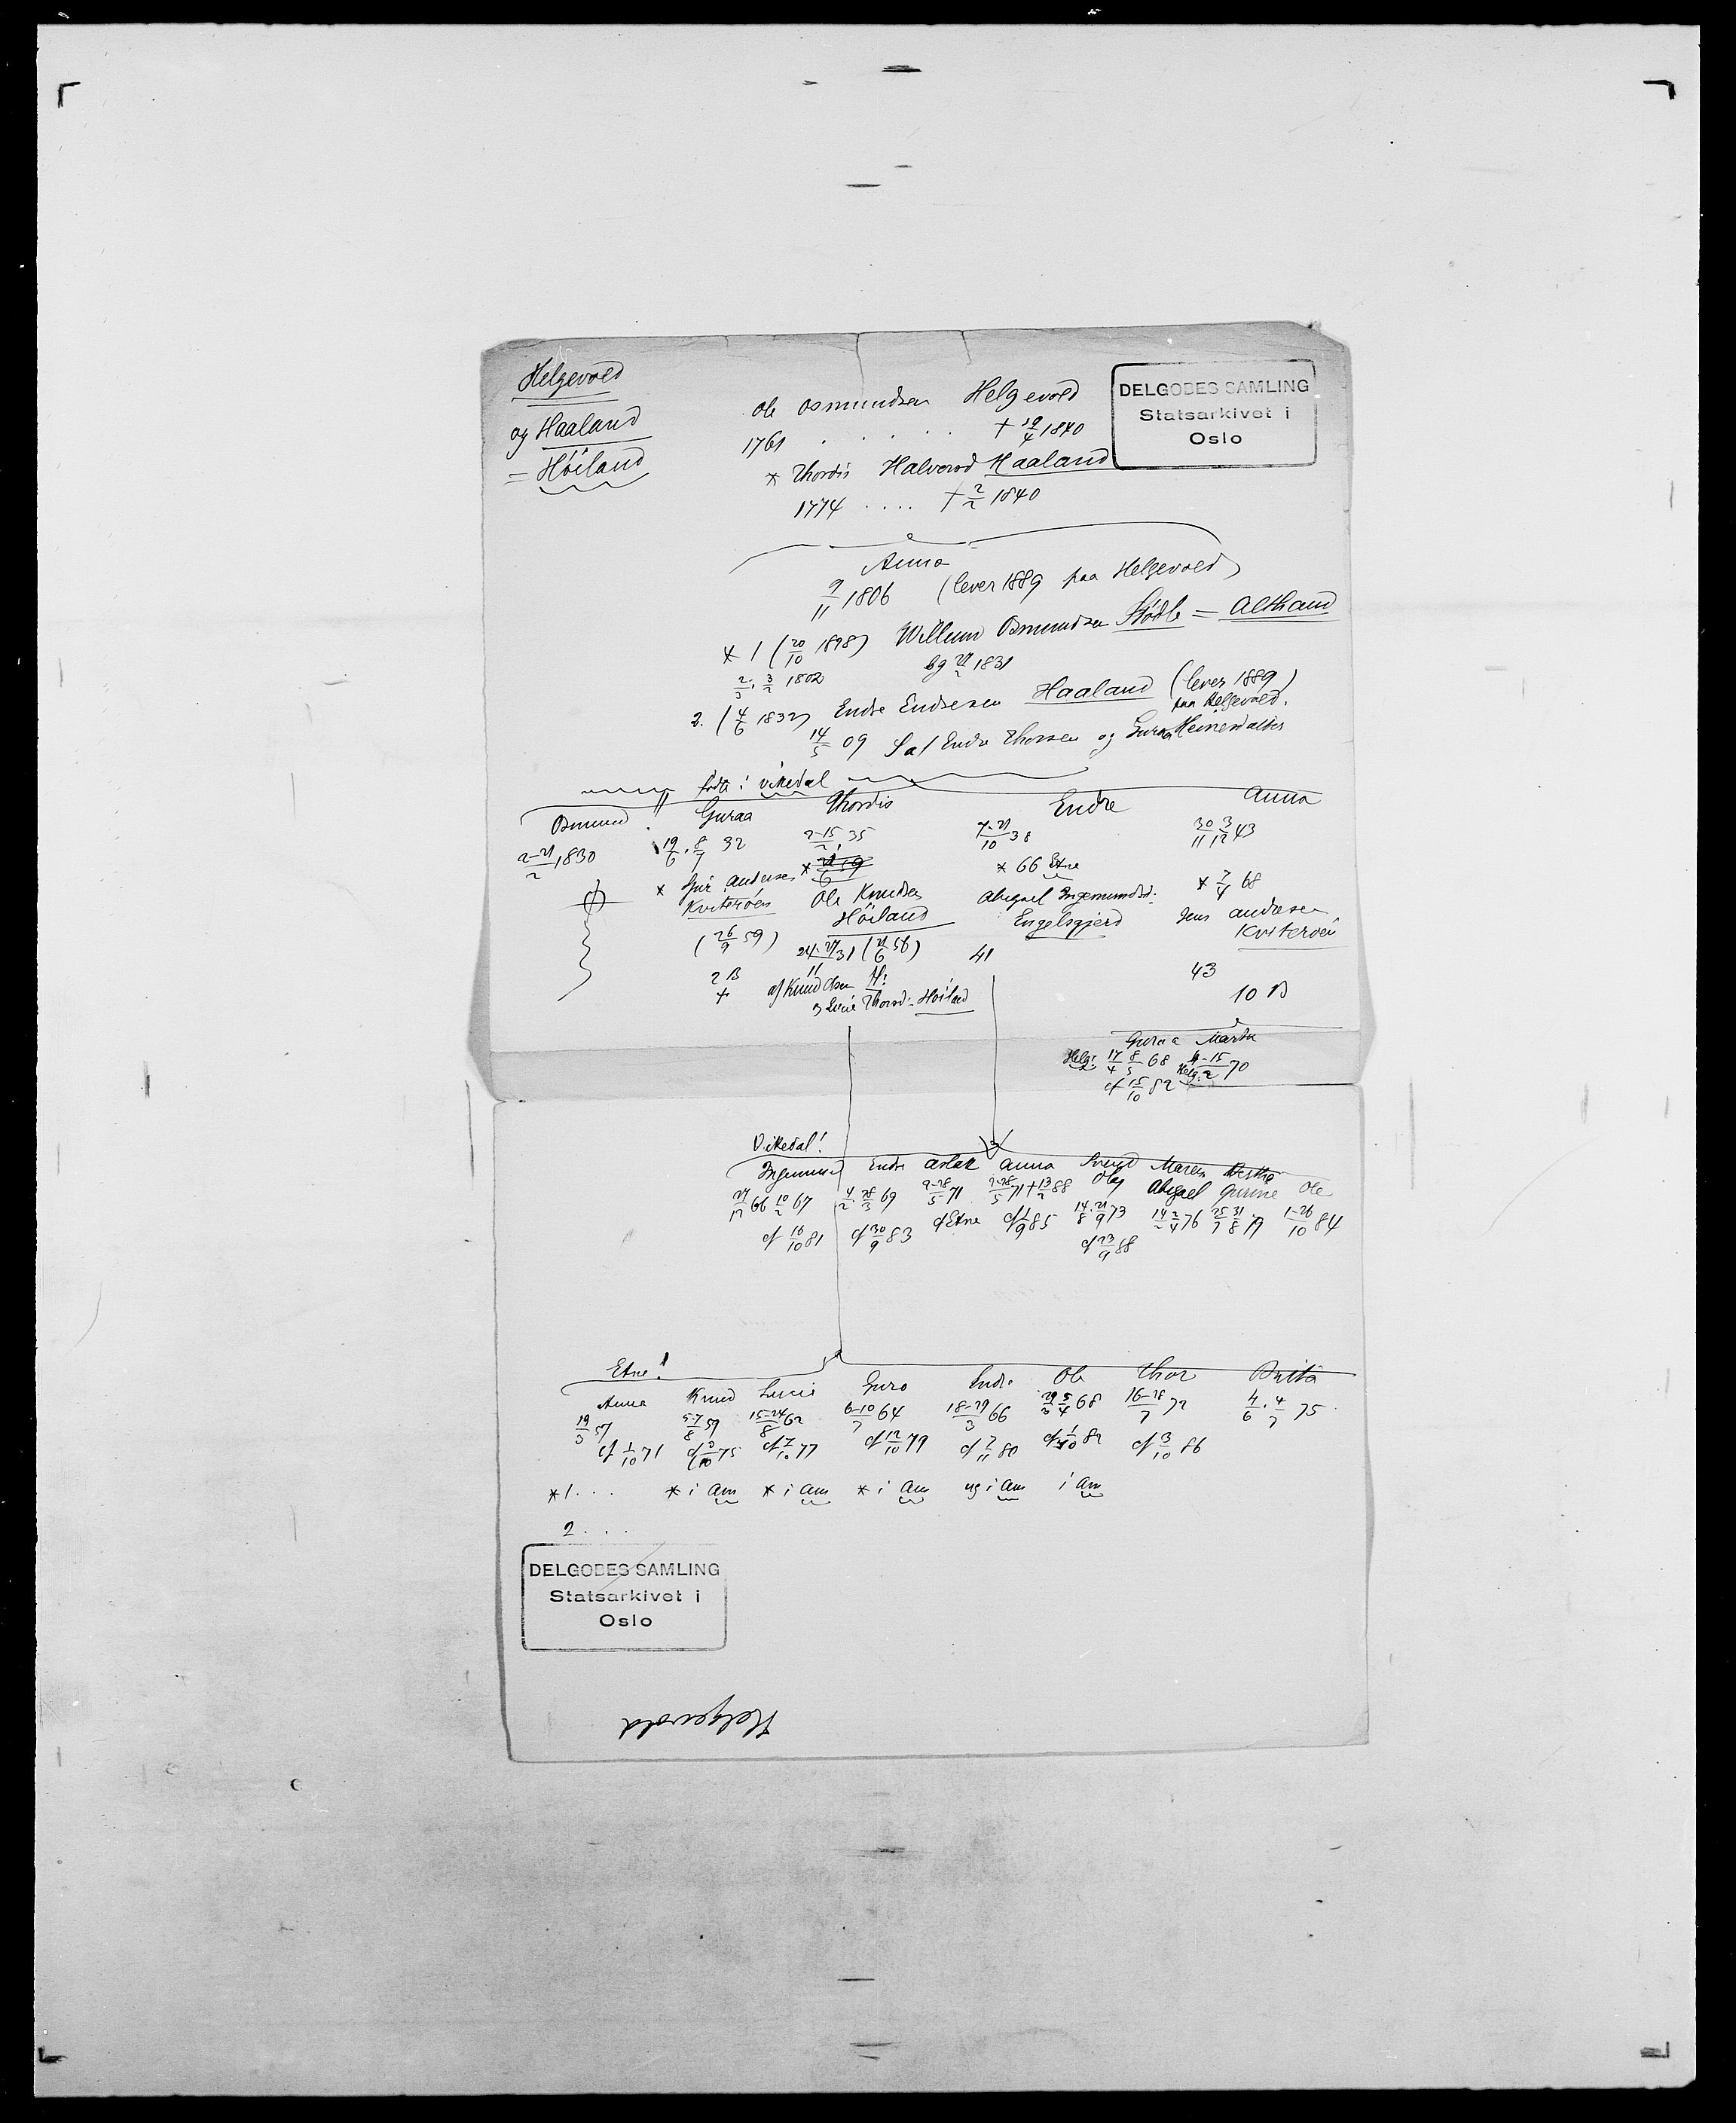 Helgevold
og Haaland
= Höiland
Ole Osmundsen Helgevold
1761 . . . . . † 19/4 1840
* Thordis Halvorsd Haaland
1774 .... † 2/2 1840
DELGOBES SAMLING
Statsarkivet i
Oslo
Anna
9/11 1806 (lever 1889 paa Helgevold)
* 1 (20/10 1828) Willum Osmundsen Stödle = Aethand
2/3. 3/2 1802 bg 27/2 1831
2. (4/6 1832) Endre Endresen Haaland (lever 1889)
paa Helgevold.
14/5 09 Endre Thorsen og Guraa
födte i Vikedal
Osmund Guraa Thordis Endre Anna
2-21/2 1830 19/6. 8/7 32 2-15/2 35 7-21/10 38 30/11 3/12 43
* 66 Etne * 7/4 68
* Andersen Ole Knudsen Abigael Ingemundsd: Jens Andersen
Kviteröen Höiland Engelsgjerd Kviteröen
(26/9 59) 24-27/11 31 (21/6 56) 41 43
2 B af Knud Olsen H: 10 B
+ Thorsd. Höiland
Guraa Marta
Helg: 17/4 8/5 68 4-15/2 70
cf 15/10 82 Helg:
Vikedal!
Ingemund Endre Aslak Anna Svend Maren Berthe
Olaj Abigael Gurine Ole
27/12 66 10/2 67 4/2. 28/3 69 9-28/5 71 9-28/5 71 + 13/2 88 14/8. 21/9 73 14/2 2/4 76 25/7 31/8 79 1-26/10 84
cf 16/10 81 cf 30/9 83 cf Etne cf 1/9 85
cf 23/9 88
Etne!
Anna Knud Lucie Guro Endre Ole Thor Brita
19/3 57 5-7/8 59 15-24/8 62 6-10/7 64 18-29/3 66 29/3 5/4 68 16-28/7 72 4/6. 4/7 75
cf 1/10 71 cf 3/10 75 cf 7/10 77 cf 12/10 79 cf 7/11 80 cf 1/10 82 cf 3/10 86
* 1. . . * i Am * i Am * i Am ug i Am i Am
2 . . .
DELGOBES SAMLING
Statsarkivet i
Oslo
Helgevold